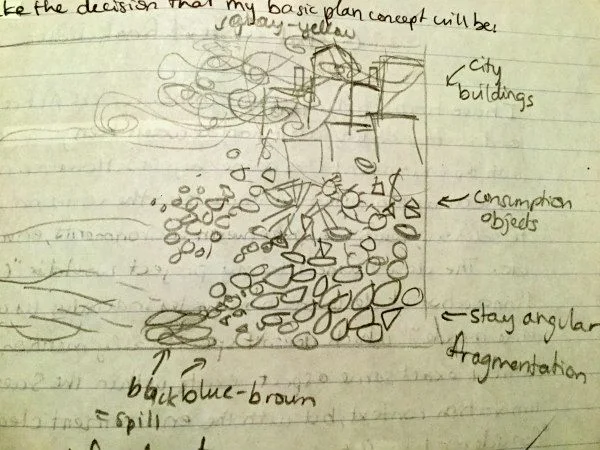 ke the decision that my basic plan concept will be:
gray-yellow
city
buildings
consumption
objects
stay angular
fragmentation
black blue-brown
= spill